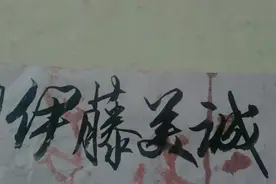 伊藤美诚